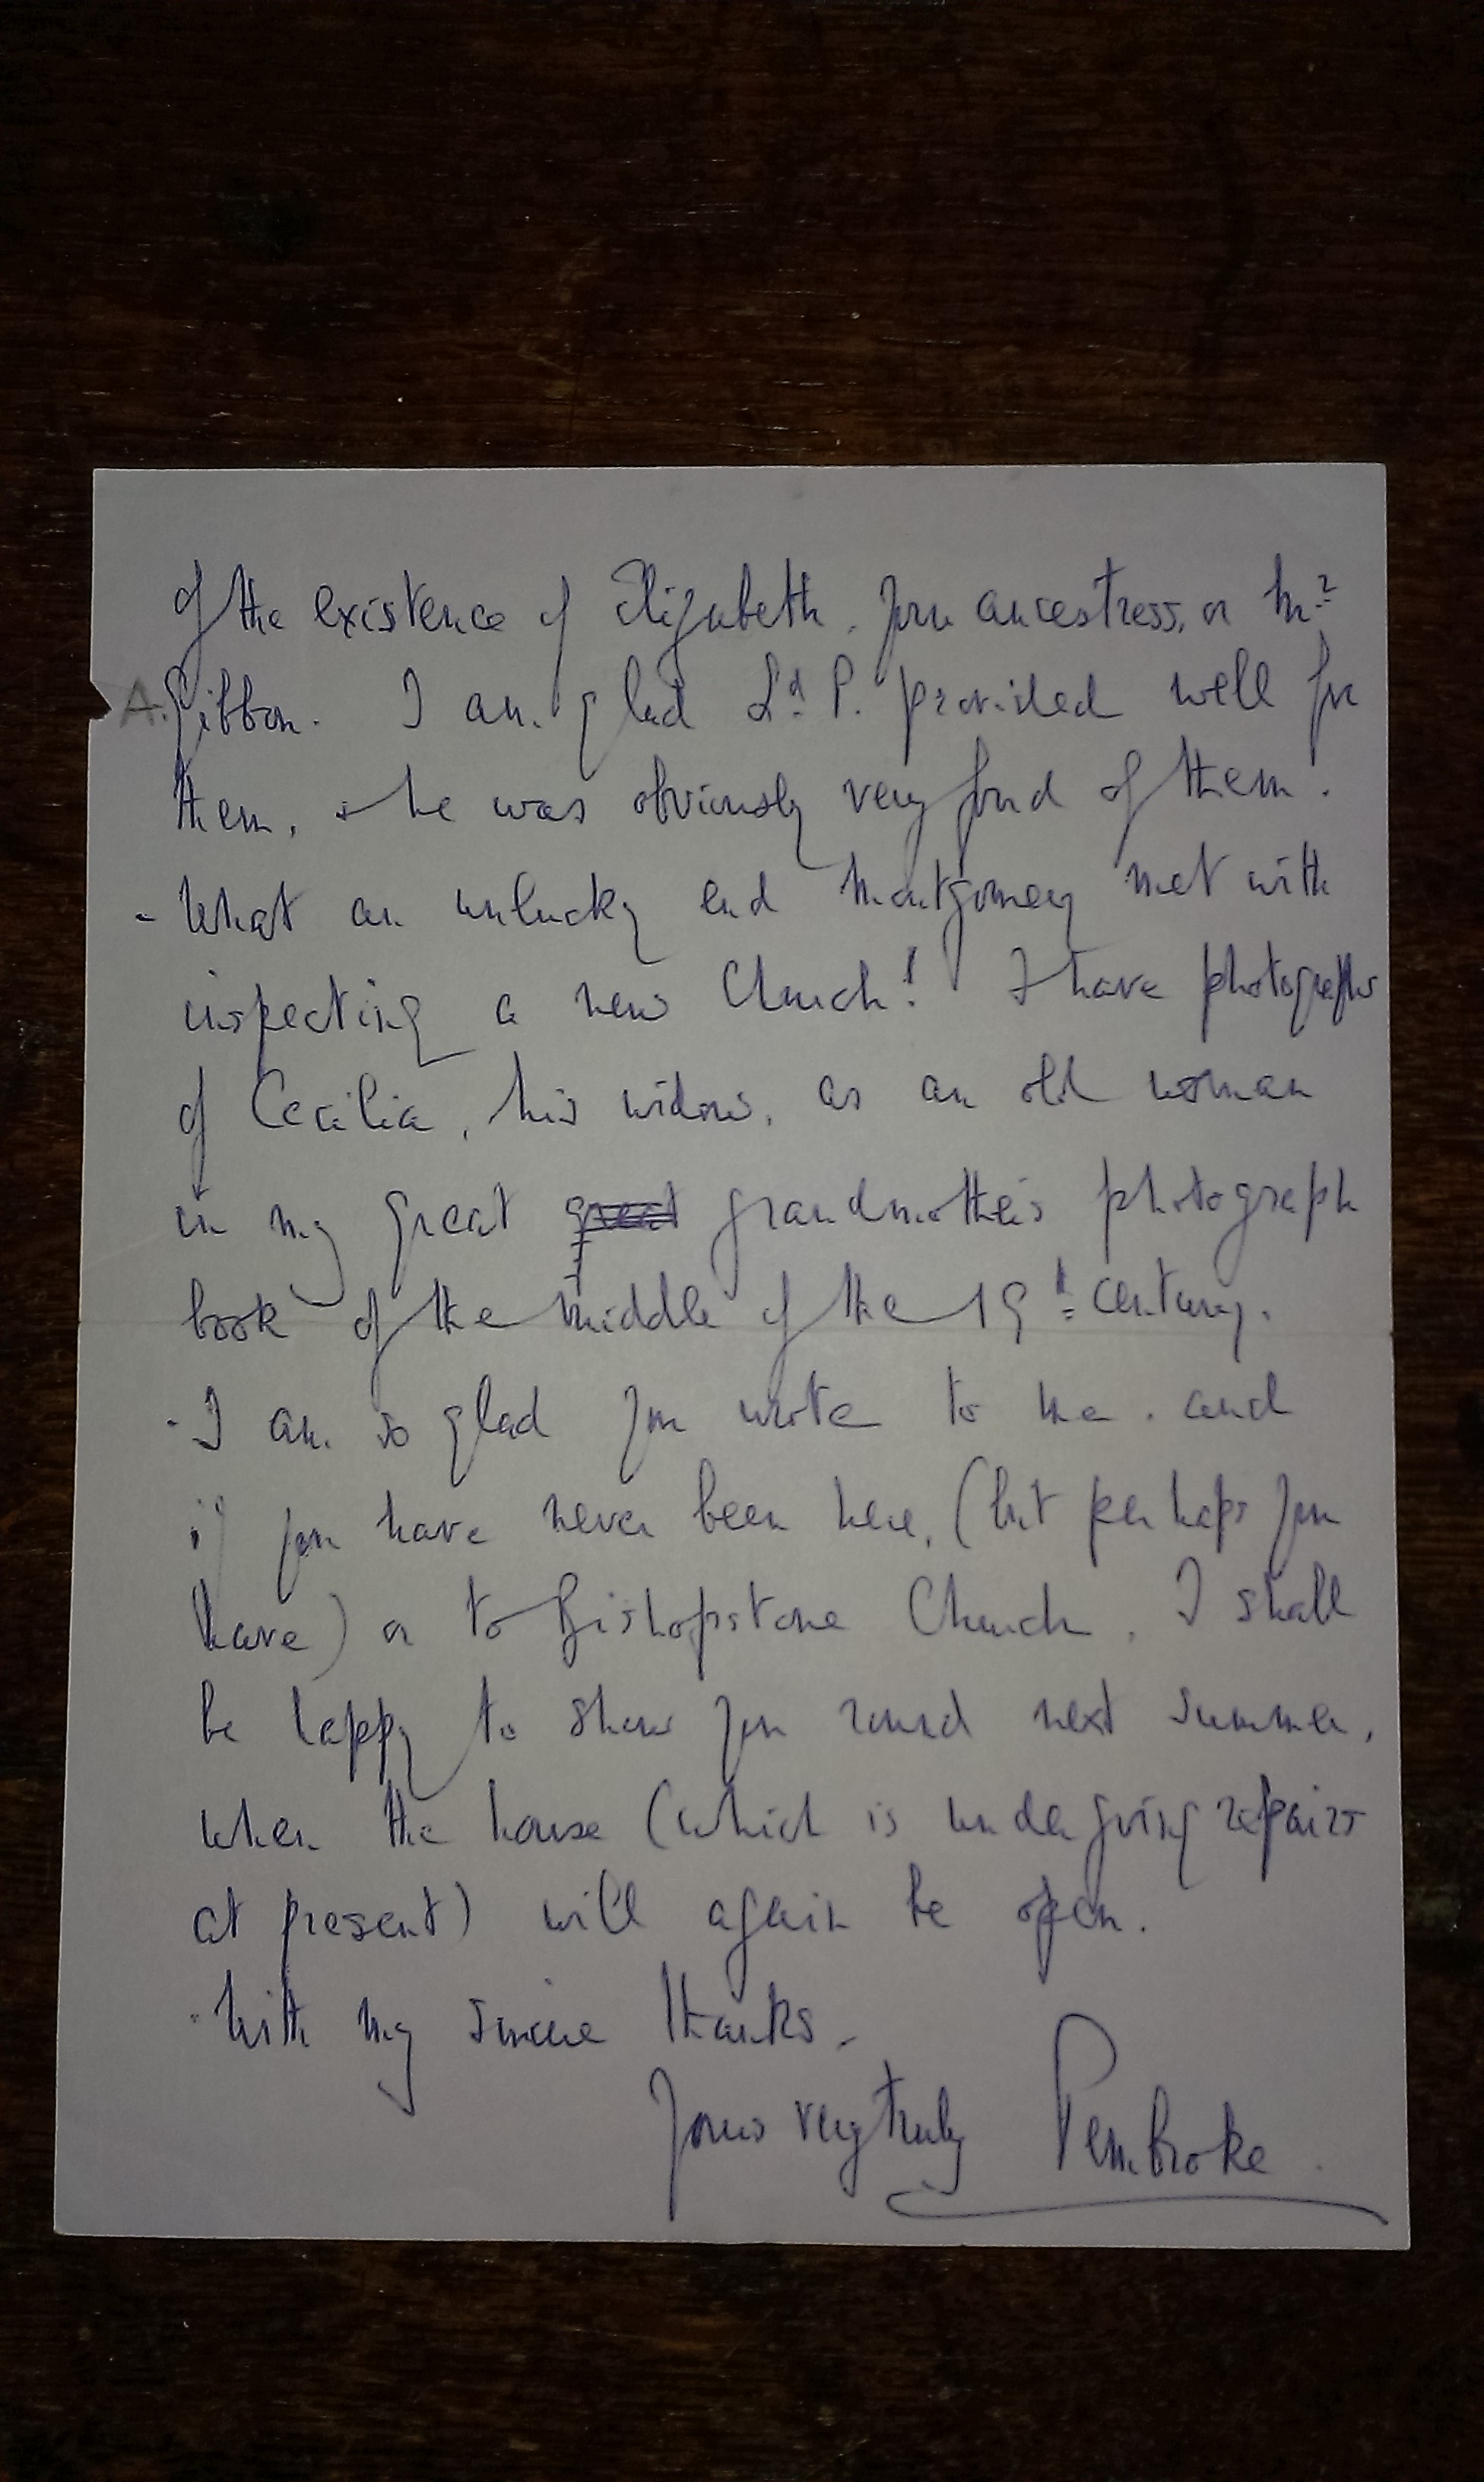 of the existence of Elizabeth, your ancestress, or Mr
A. Gibbon. I am glad Ld P. provided well for
them, & he was obviously very fond of them.
- What an unlucky end Montgomery met with
inspecting a new Church! I have photographs
of Cecilia, his widow, as an old woman
in my great great grandmother's photograph
book of the middle of the 19th century.
- I am so glad you wrote to me. and
if you have never been here, (but perhaps you
have) or to Bishopstone Church, I shall
be happy to show you round next summer,
when the house (which is undergoing repairs
at present) will again be open.
- With my sincere thanks -
Yours very truly Pembroke.